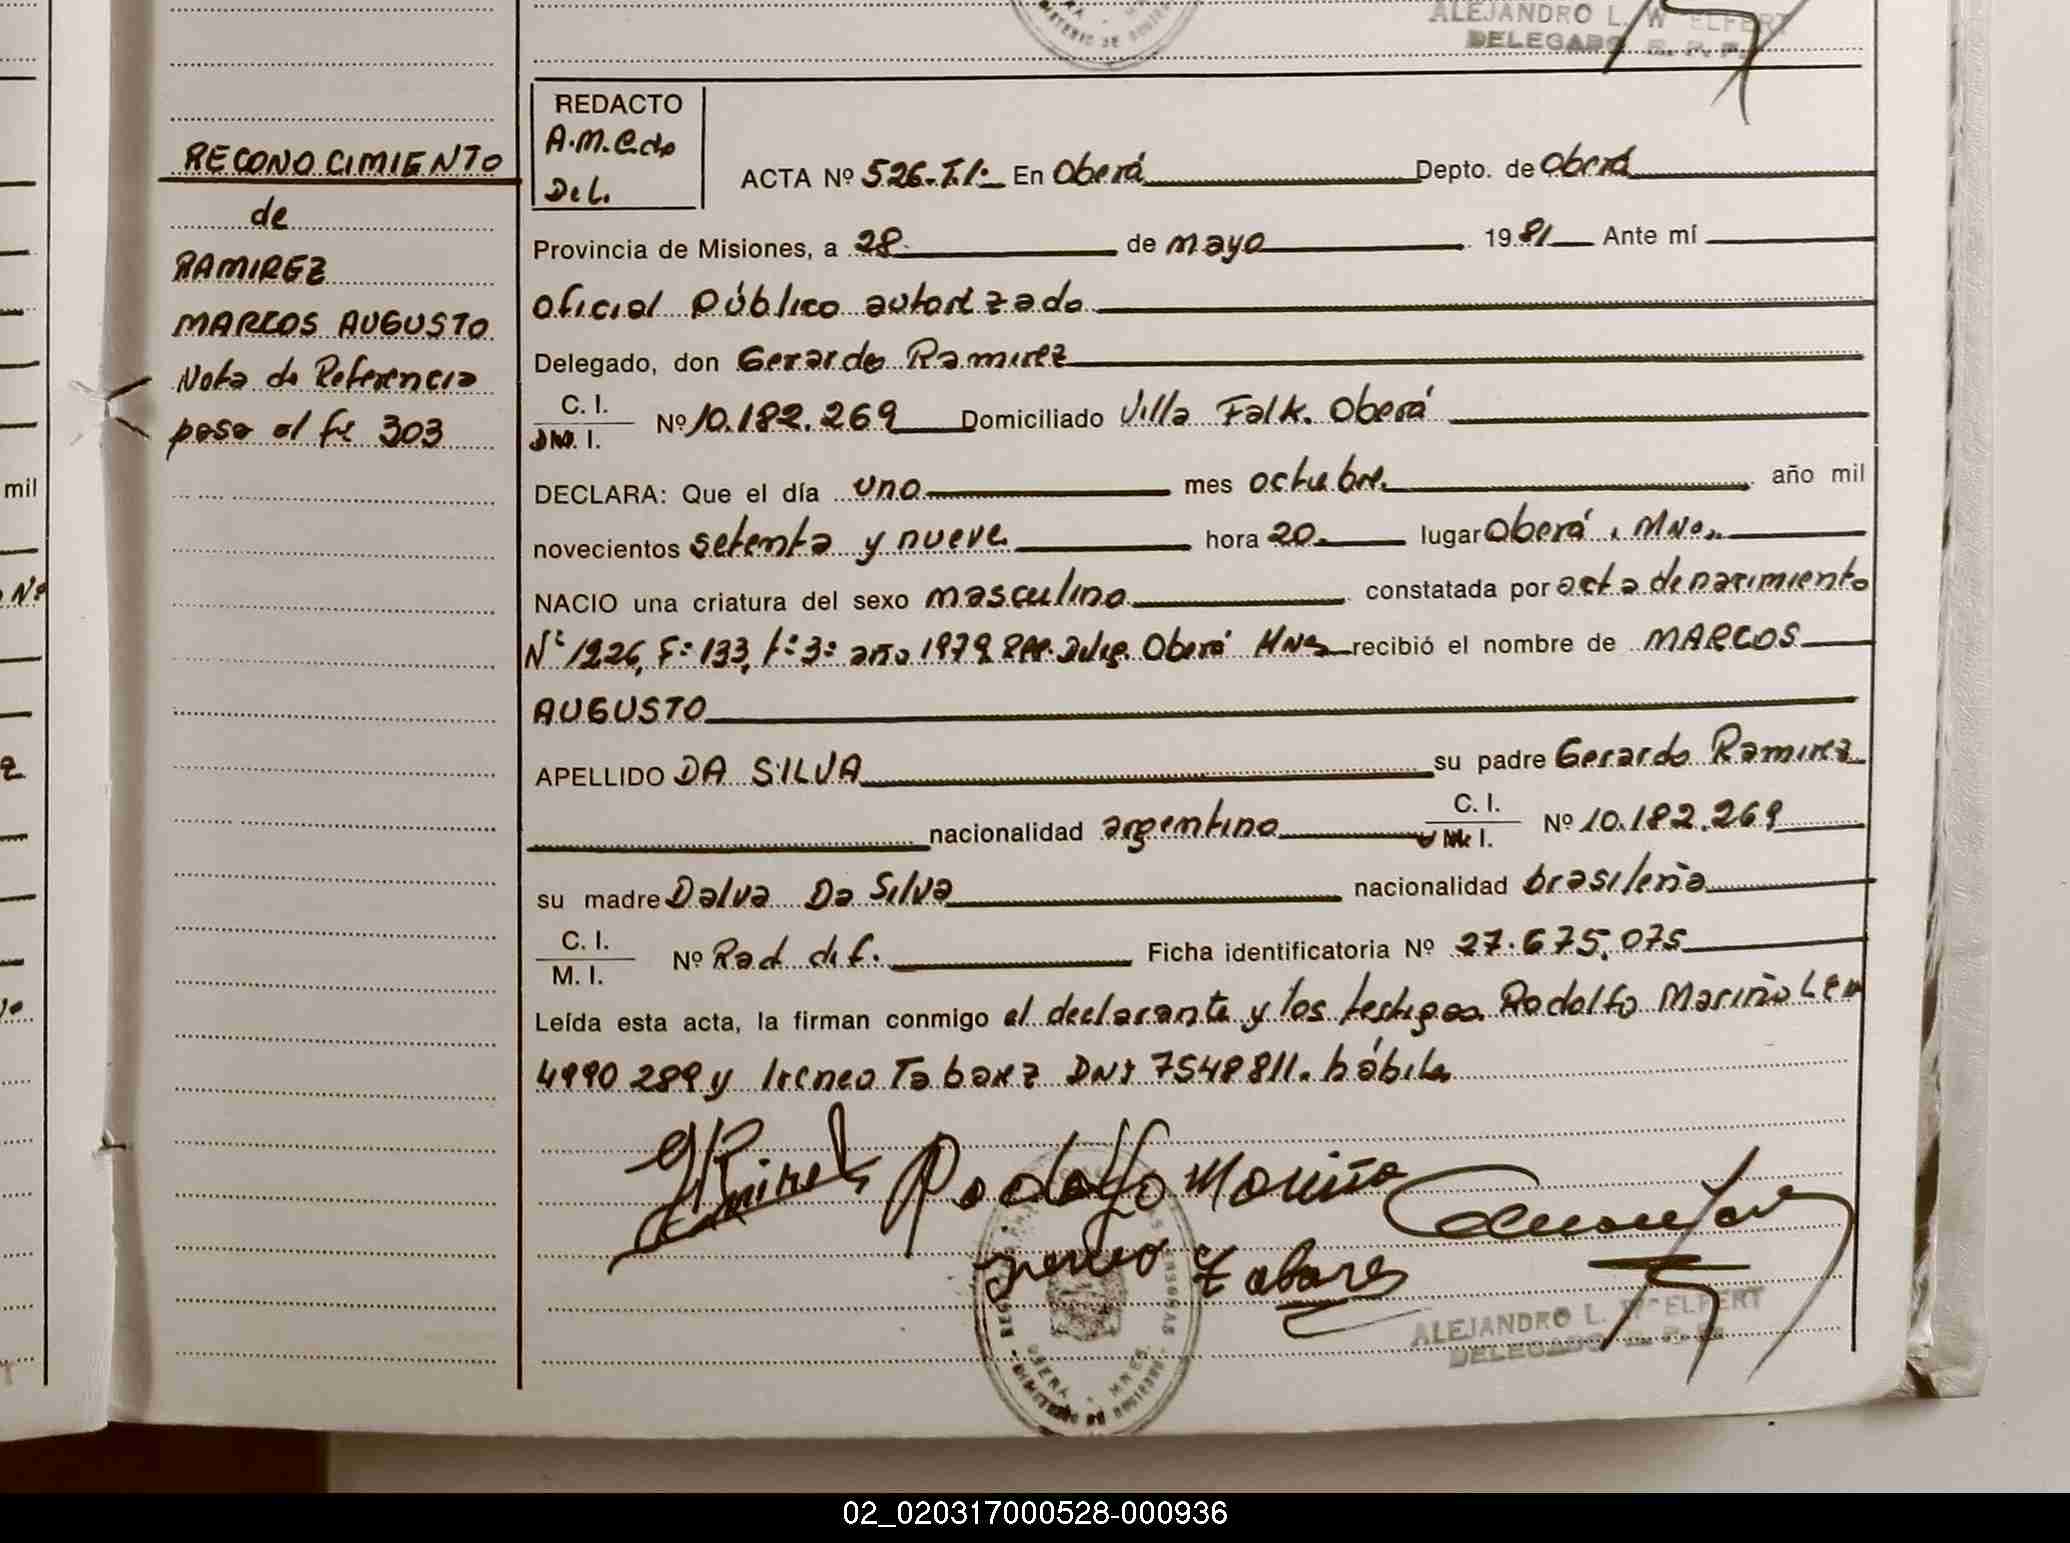 ALEJANDRO L. W ELFERT
DELEGADO R. P. P.
RECONOCIMIENTO
de
RAMIREZ
MARCOS AUGUSTO
Nota de Referencia
pasa al fº 303
mil
Nº
REDACTO
A.M.C.do
Del.
ACTA Nº 526-T.1º- En Oberá Depto. de Oberá
Provincia de Misiones, a 28 de mayo 1981 Ante mí
oficial público autorizado
Delegado, don Gerardo Ramirez
C. I.
Nº 10.182.269 Domiciliado Villa Falk. Oberá
DNI. I.
DECLARA: Que el día uno mes octubre año mil
novecientos setenta y nueve hora 20. lugar Oberá, MNes.
NACIO una criatura del sexo masculino constatada por acta de nacimiento
Nº 1226, Fº 133, tº 3º año 1979 Deleg. Oberá MNes recibió el nombre de MARCOS
AUGUSTO
APELLIDO DA SILVA su padre Gerardo Ramirez
nacionalidad argentino C. I. Nº 10.182.269
su madre Dalva Da Silva nacionalidad brasileña
C. I.
M. I.
Nº Rad. def. Ficha identificatoria Nº 27.675.075
Leída esta acta, la firman conmigo el declarante y los testigos Rodolfo Mariño LEM
4990 289 y Ireneo Tabarez DNI 7548811. hábiles
Rodolfo Moriño
Ireneo Tabares
ALEJANDRO L. W ELFERT
DELEGADO R. P. P.
OBERA - MNES.
MINISTERIO DE GOBIERNO
02_020317000528-000936